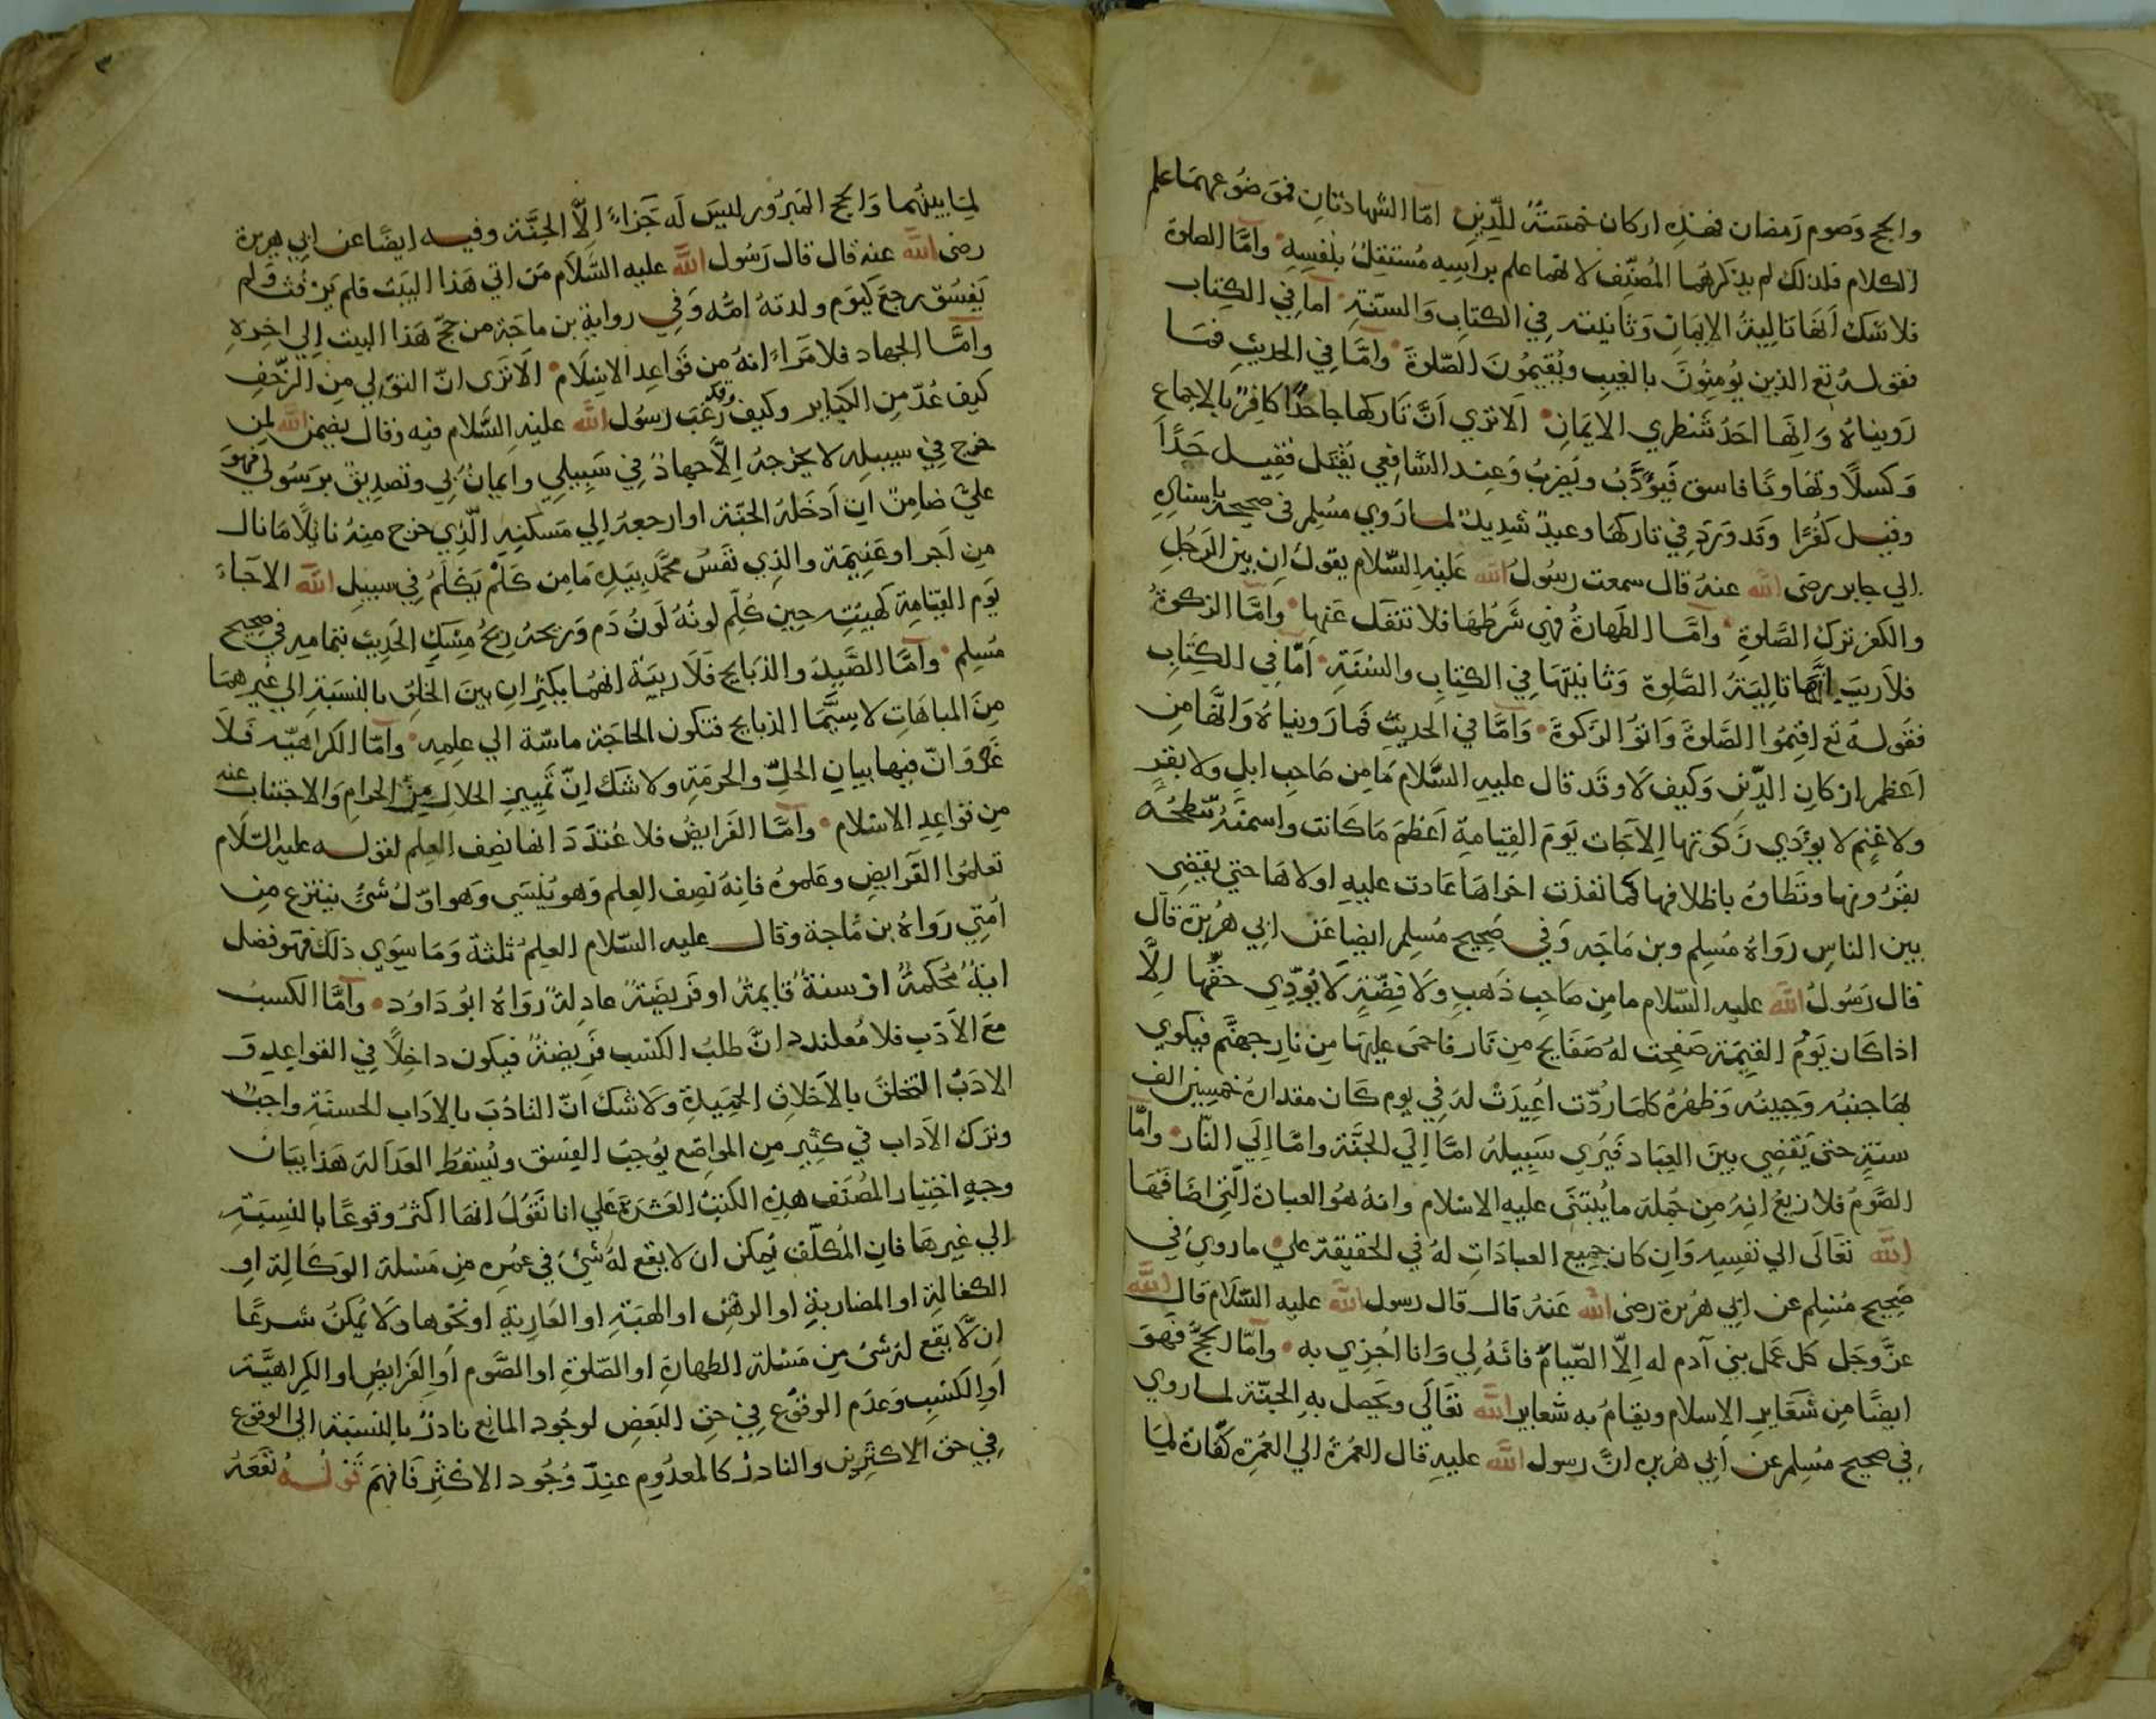 والحج وصوم رمضان فهذه اركان خمسة للدين امّا الشهادتان فموضوعهما علم
الكلام فلذلك لم يذكرهما المصنّف لانهما علم براسه مستقل بنفسه وامّا الصلوة
فلا شك انها تالية الايمان وثانيته في الكتاب والسنّة اما في الكتاب
فقوله تع الذين يؤمنون بالغيب ويقيمون الصلوة وامّا في الحديث فما
رويناه وانها احد شطري الايمان الا تري انّ تاركها جاحدًا كافر بالاجماع
وكسلًا وتهاونًا فاسق فيؤدّب ويضرب وعند الشافعي يقتل فقيل حدًّا
وقيل كفرًا وقد ورد في تاركها وعيد شديد لما روي مسلم في صحيحه باسناده
الي جابر رضى الله عنه قال سمعت رسول الله عليه السّلام يقول ان بين الرجل
والكفر ترك الصّلوة وامّا الطهارة فهي شرطها فلا تنفك عنها وامّا الزكوة
فلا ريب انّها تالية الصّلوة وثانيتها في الكتاب والسنة امّا في الكتاب
فقوله تع اقيموا الصّلوة واتوا الزكوة وامّا في الحديث فما رويناه وانّها من
اعظم اركان الدّين وكيف لا وقد قال عليه السّلام ما من صاحب ابل ولا بقر
ولا غنم لا يؤدي زكوتها الا جات يوم القيامة اعظم ما كانت واسمنه تنطحه
بقرونها وتطاوه باظلافها كما نفذت اخراها عادت عليه اولاها حتي يقضي
بين الناس رواه مسلم وبن ماجه وفي صحيح مسلم ايضا عن ابي هريرة قال
قال رسول الله عليه السّلام ما من صاحب ذهب ولا فضّة لا يؤدّي حقّها الّا
اذا كان يوم القيمة صفحت له صفايح من نار فاحمى عليها من نار جهنّم فيكوي
بها جنبه وجبينه وظهره كلما ردّت اعيدت له في يوم كان مقداره خمسين الف
سنة حتى يقضي بين العباد فيري سبيله امّا الي الجنّة وامّا الي النّار وامّا
الصّوم فلا ريع انه من جملة ما يبتنى عليه الاسلام وانه هو العبادة الّتي اضافها
الله تعالى الي نفسه وان كان جميع العبادات له في الحقيقة علي ما روي في
صحيح مسلم عن ابي هريرة رضى الله عنه قال قال رسول الله عليه السّلام قال الله
عزّ وجل كل عمل بني آدم له الّا الصّيام فانه لي وانا اجزي به وامّا الحجّ فهو
ايضًا من شعاير الاسلام ويقام به شعاير الله تعالى ويحصل به الجنّة لما روي
في صحيح مسلم عن ابي هريرة انّ رسول الله عليه قال العمرة الي العمرة كفّارة لما
٣
لما بينهما والحج المبرور ليس له جزاء الّا الجنّة وفيه ايضًا عن ابي هريرة
رضى الله عنه قال قال رسول الله عليه السّلام من اتي هذا البيت فلم يرفث ولم
يفسق رجع كيوم ولدته امّه وفي رواية بن ماجة من حجّ هذا البيت الي اخره
وامّا الجهاد فلا مراء انه من قواعد الاسلام الا ترى انّ التولي من الزحف
كيف عدّ من الكباير وكيف وقد رغب رسول الله عليه السّلام فيه وقال يضمن الله لمن
خرج في سبيله لا يخرجه الّا جهاد في سبيلي وايمان بي وتصديق برسولي فهو
عليّ ضامن ان ادخله الجنّة او ارجعه الي مسكنه الّذي خرج منه نائلًا ما نال
من اجر او غنيمة والذي نفس محمّد بيده ما من كلم يكلم في سبيل الله الا جاء
يوم القيامة كهيئته حين كلم لونه لون دم وريحه ريح مسك الحديث بتمامه في صحيح
مسلم وامّا الصّيد والذبايح فلا ريبة انهما يكثران بين الخلق بالنسبة الي غيرهما
من المباهات لا سيّما الذبايح فتكون الحاجة ماسّة الي علمه وامّا الكراهيّة فلا
غرو انّ فيها بيان الحلّ والحرمة ولا شك انّ تمييز الحلال من الحرام والاجتناب عنه
من قواعد الاسلام وامّا الفرايض فلا عندد انها نصف العلم لقوله عليه السّلام
تعلموا الفرايض وعلموه فانه نصف العلم وهو ينسي وهو اوّل شئ ينتزع من
امتي رواه بن ماجة وقال عليه السّلام العلم ثلثة وما سوي ذلك فهو فضل
اية محكمة او سنة قايمة او فريضة عادلة رواه ابو داود وامّا الكسب
مع الادب فلا معلندد انّ طلب الكسب فريضة فيكون داخلًا في القواعد و
الادب التخلق بالاخلاق الحميدة ولا شك انّ التادّب بالاداب الحسنة واجب
وترك الاداب في كثير من المواضع يوجب الفسق ويسقط العدالة هذا بيان
وجه اختيار المصنف هذه الكتب العشرة علي انا نقول انها اكثر وقوعًا بالنسبة
الي غيرها فان المكلّف يمكن ان لا يقع له شئ في عمره من مسلة الوكالة او
الكفالة او المضاربة او الرهن او الهبة او العارية او نحوها ولا يمكن شرعًا
ان لا يقع له شئ من مسلة الطهارة او الصّلوة او الصّوم او الفرايض او الكراهيّة
او الكسب وعدم الوقوع في حق البعض لوجود المانع نادر بالنسبة الي الوقوع
في حق الاكثرين والنادر كالمعدوم عند وجود الاكثر فافهم قوله نفعه